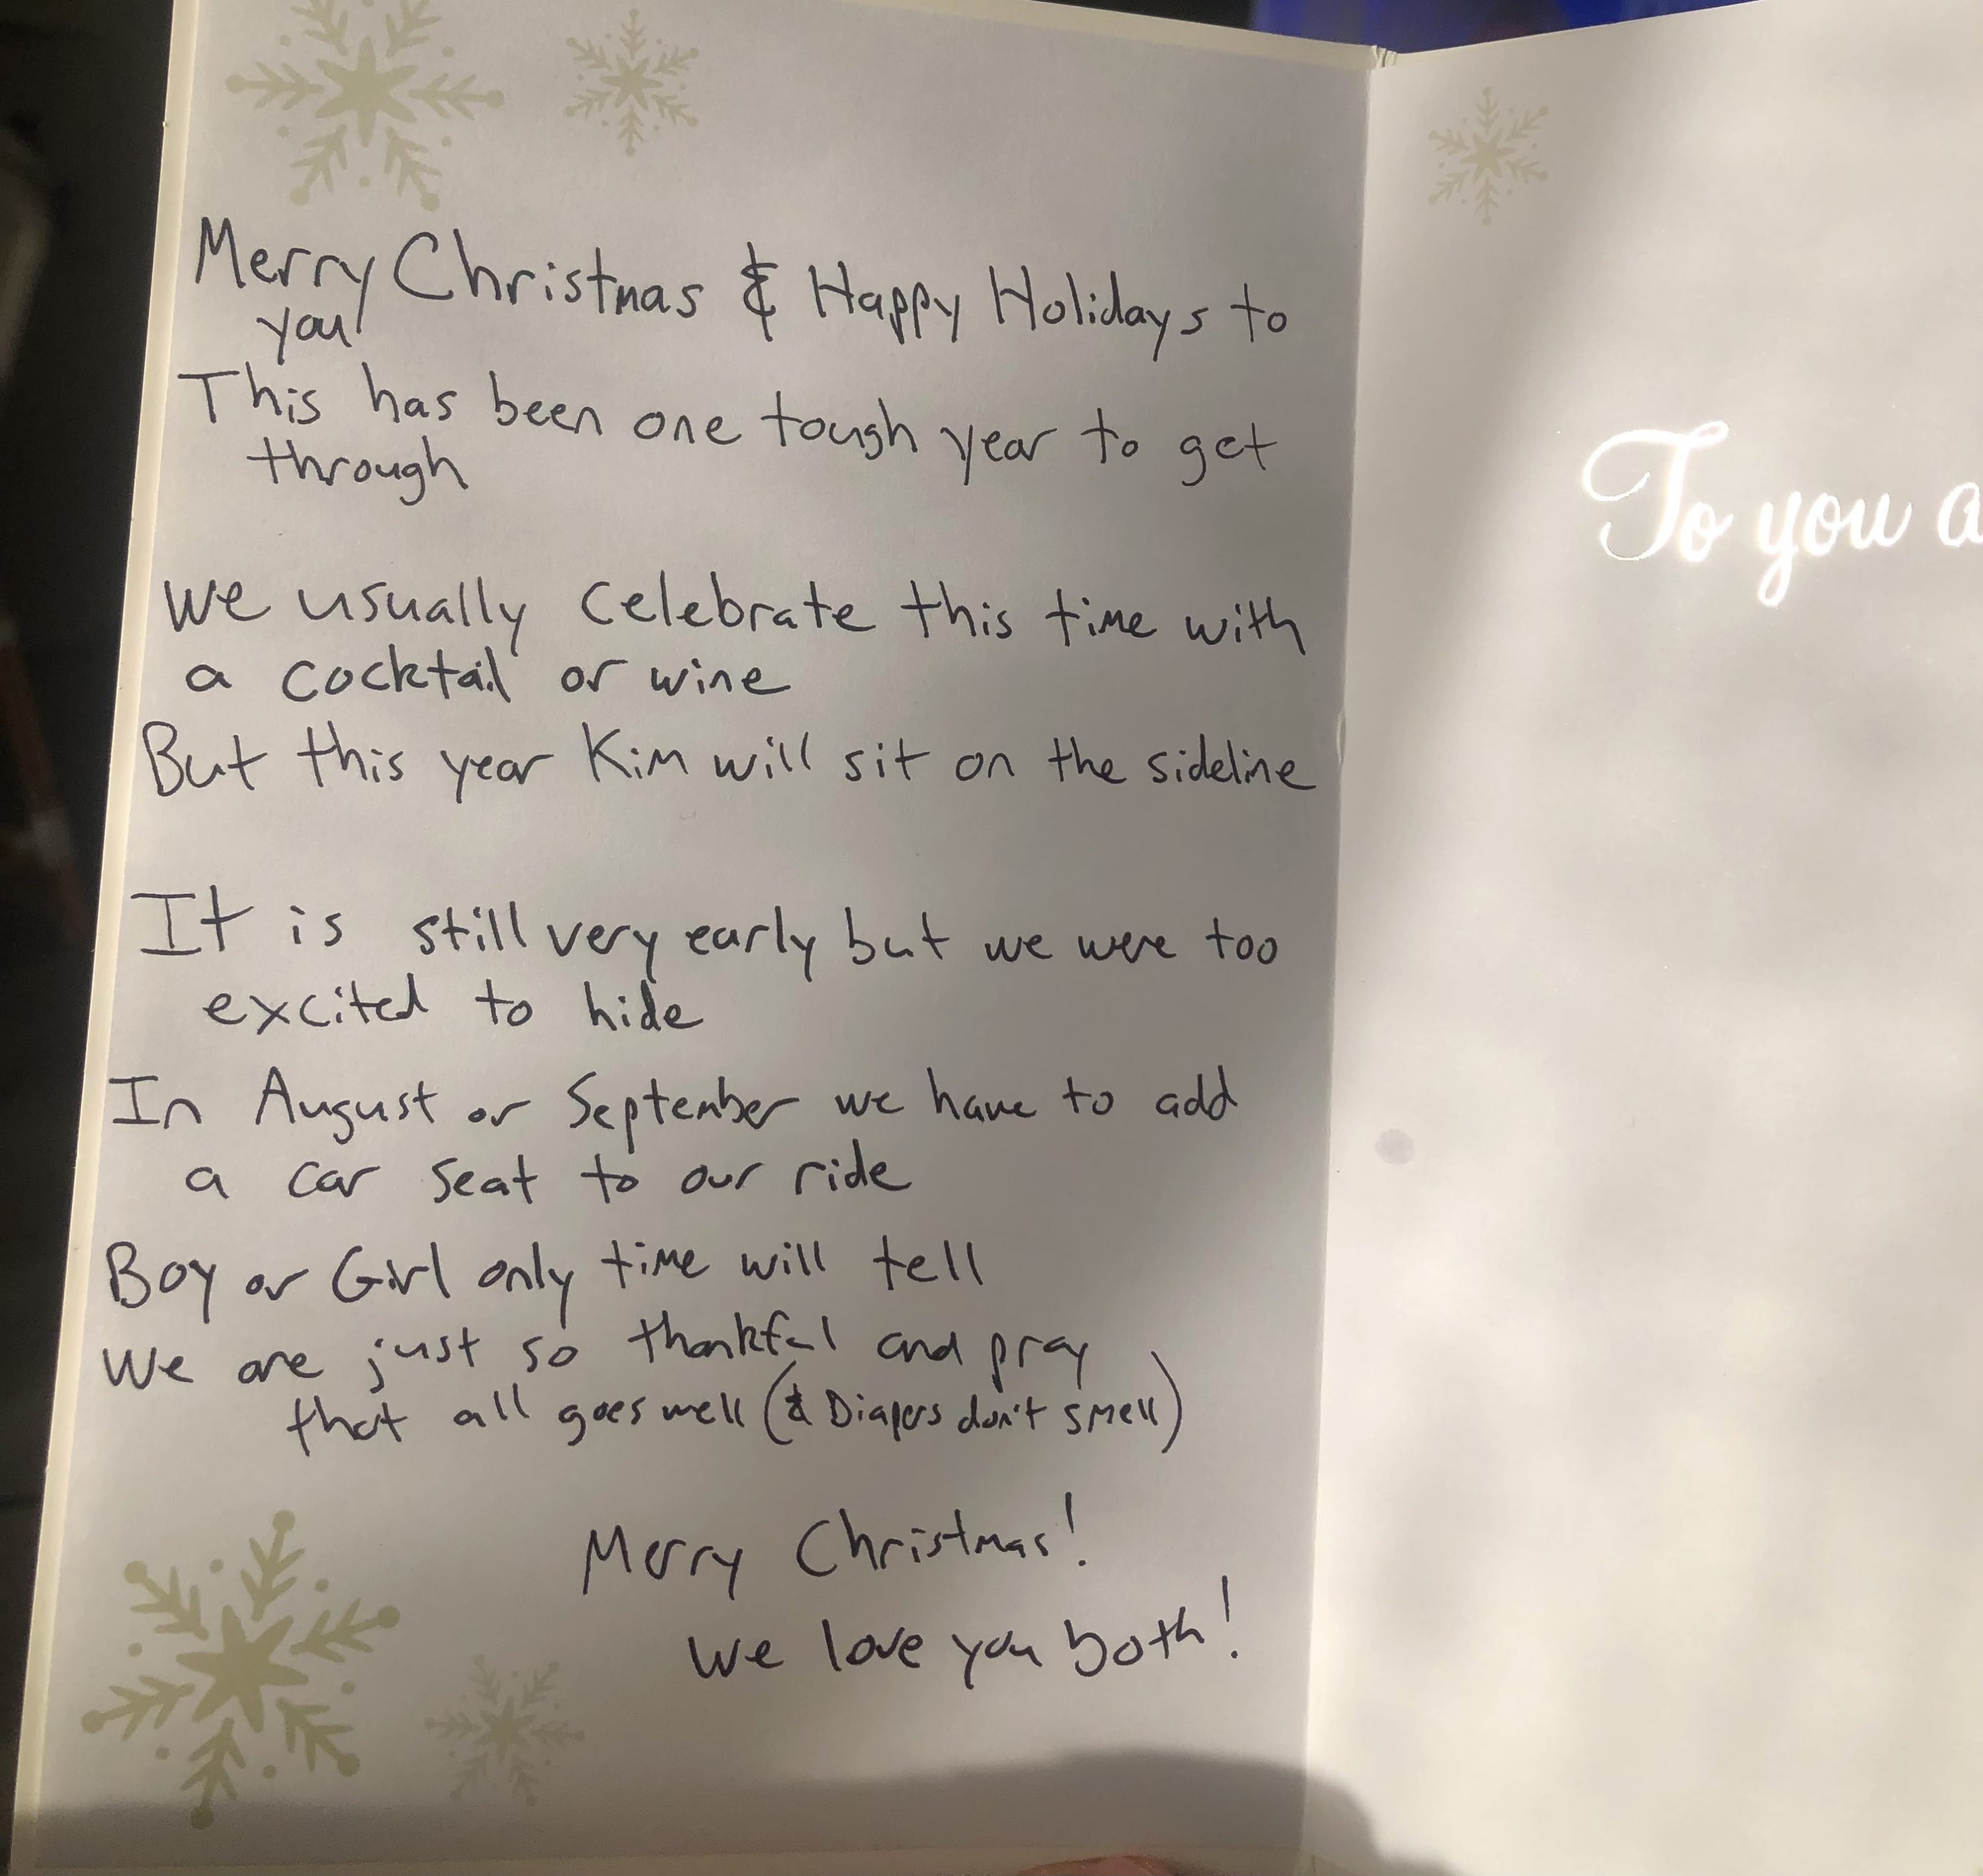 Merry Christmas & Happy Holidays to
you
This has been one tough year to get
through
We usually celebrate this time with
a cocktail or wine
But this year Kim will sit on the sideline
It is still very early but we were too
excited to hide
In August or September we have to add
a car seat to our ride
Boy or Girl only time will tell
We are just so thankful and pray
that all goes well (& Diapers don't smell)
Merry Christmas!
We love you both!
To you a